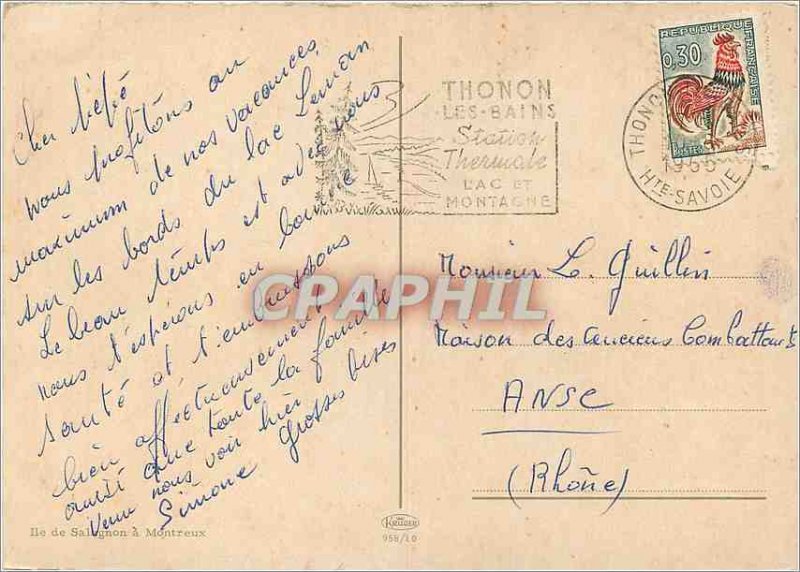 Cher Pépé
nous profitons au
maximum de nos vacances
sur les bords du lac Leman
Le beau temps est avec nous
nous t'espérons en bonne
santé et t'embrassons
bien affectueusement
ainsi que toute la famille
venu nous voir hier
Simone Grosses bises
Ile de Salagnon à Montreux
THONON
LES-BAINS
Station
Thermale
LAC ET
MONTAGNE
REPUBLIQUE FRANÇAISE
0,30
POSTES
THONON
HTE-SAVOIE
Monsieur L. Guillin
Maison des Anciens Combattants
ANSE
(Rhône)
KRUGER
958/10
CPARPHIL